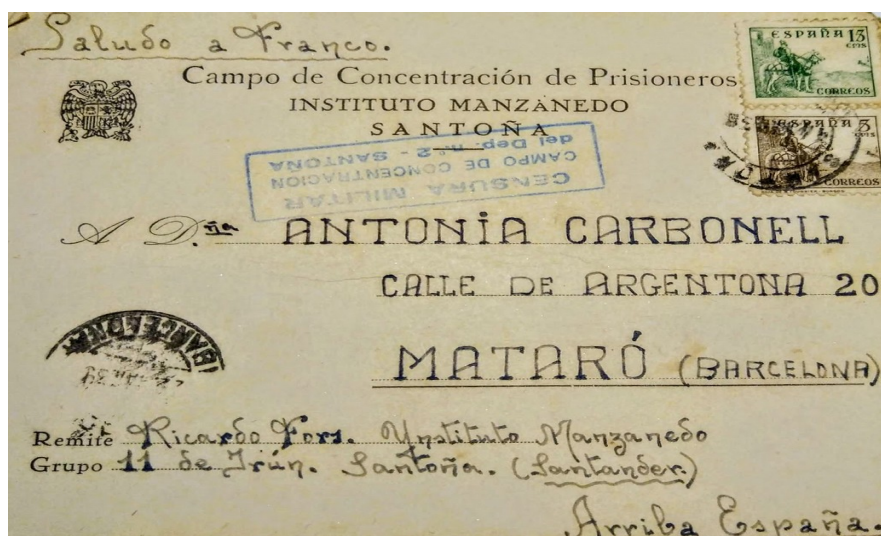 Saludo a Franco.
ESPAÑA 13
CTMS
CORREOS
Campo de Concentración de Prisioneros
INSTITUTO MANZANEDO
SANTOÑA
ESPAÑA 5
CTMS
CORREOS
CENSURA MILITAR
CAMPO DE CONCENTRACION
del Dep. n.º 2 - SANTOÑA
A D.ña ANTONIA CARBONELL
CALLE DE ARGENTONA 20
MATARÓ (BARCELONA)
BARCELONA
Remite Ricardo Fors. Ynstituto Manzanedo
Grupo 11 de Irún. Santoña. (Santander.)
Arriba España.